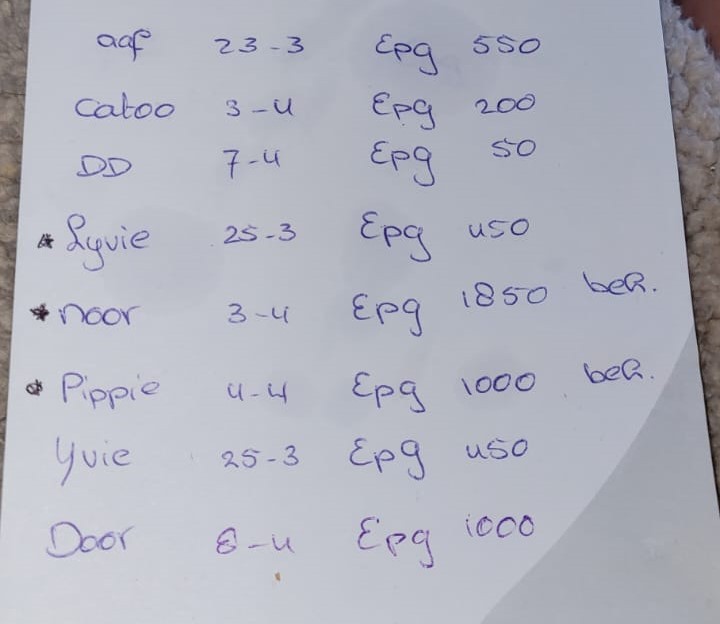 aaf 23-3 Epg 550
Catoo 3-4 Epg 200
DD 7-4 Epg 50
* Lyvie 25-3 Epg 450
* noor 3-4 Epg 1850 beh.
* Pippie 4-4 Epg 1000 beh.
Yvie 25-3 Epg 450
Door 8-4 Epg 1000